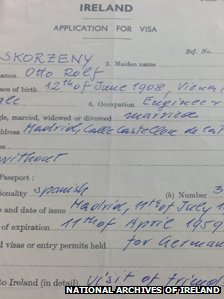 IRELAND
APPLICATION FOR VISA
SKORZENY 2. Maiden name Ref. No.
ames. Otto Rolf
of birth 12th of June 1908, Vienna,
6. Occupation Engineer
gle, married, widowed or divorced married
ddress Madrid, Calle Castellon de la
without
Passport :
ionality spanish (b) Number 3
e and date of issue Madrid, 19th of July 1
of expiration 11th of April 1959
d visas or entry permits held. for German
to Ireland (in detail) Visit of friend
NATIONAL ARCHIVES OF IRELAND